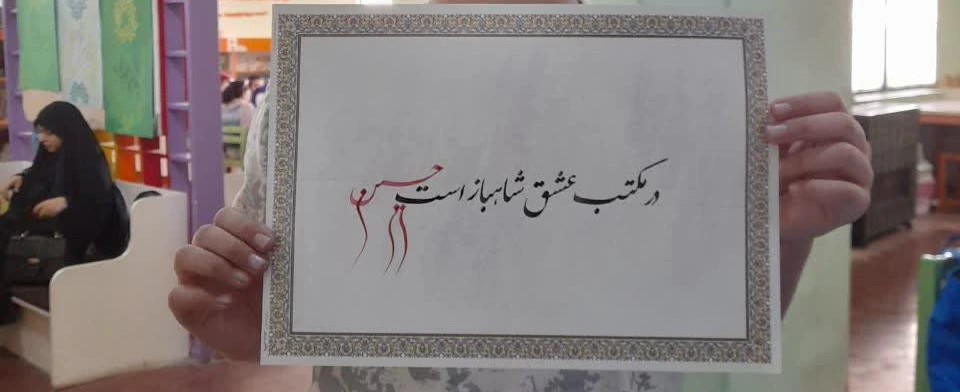 در مکتب عشق شاهباز است حسن